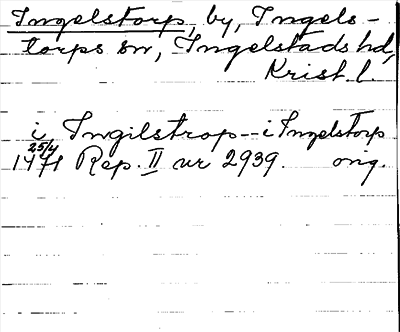 Ingelstorp, by, Ingels-
torps sn, Ingelstads hd,
Krist. l.
i Ingilstrop – i Ingelstorp
25/4
1471 Rep. II nr 2939. orig.